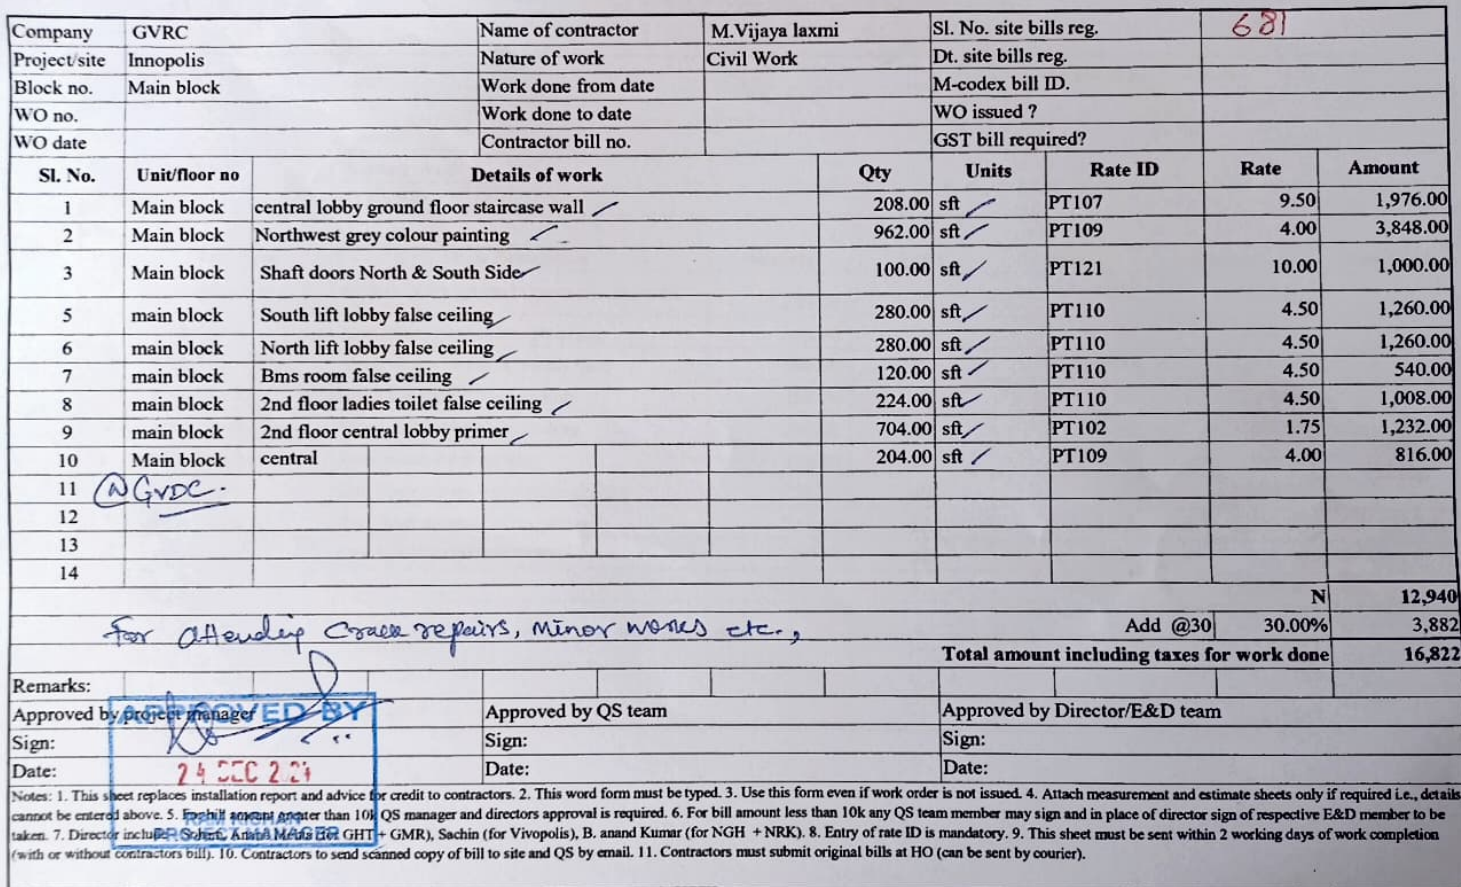 Company GVRC Name of contractor M.Vijaya laxmi Sl. No. site bills reg. 681
Project/site Innopolis Nature of work Civil Work Dt. site bills reg.
Block no. Main block Work done from date M-codex bill ID.
WO no. Work done to date WO issued ?
WO date Contractor bill no. GST bill required?
Sl. No. Unit/floor no Details of work Qty Units Rate ID Rate Amount
1 Main block central lobby ground floor staircase wall 208.00 sft PT107 9.50 1,976.00
2 Main block Northwest grey colour painting 962.00 sft PT109 4.00 3,848.00
3 Main block Shaft doors North & South Side 100.00 sft PT121 10.00 1,000.00
5 main block South lift lobby false ceiling 280.00 sft PT110 4.50 1,260.00
6 main block North lift lobby false ceiling 280.00 sft PT110 4.50 1,260.00
7 main block Bms room false ceiling 120.00 sft PT110 4.50 540.00
8 main block 2nd floor ladies toilet false ceiling 224.00 sft PT110 4.50 1,008.00
9 main block 2nd floor central lobby primer 704.00 sft PT102 1.75 1,232.00
10 Main block central 204.00 sft PT109 4.00 816.00
11 @ GVDC.
12
13
14
N 12,940
For attending Crack repairs, Minor works etc., Add @30 30.00% 3,882
Total amount including taxes for work done 16,822
Remarks:
APPROVED BY
Approved by project manager Approved by QS team Approved by Director/E&D team
Sign: Sign: Sign:
Date: 24 DEC Date: Date:
Notes: 1. This sheet replaces installation report and advice for credit to contractors. 2. This word form must be typed. 3. Use this form even if work order is not issued. 4. Attach measurement and estimate sheets only if required i.e., details
cannot be entered above. 5. For bill amount greater than 10k QS manager and directors approval is required. 6. For bill amount less than 10k any QS team member may sign and in place of director sign of respective E&D member to be
taken. 7. Director include GHT + GMR), Sachin (for Vivopolis), B. anand Kumar (for NGH + NRK). 8. Entry of rate ID is mandatory. 9. This sheet must be sent within 2 working days of work completion
PROJECT MANAGER
(with or without contractors bill). 10. Contractors to send scanned copy of bill to site and QS by email. 11. Contractors must submit original bills at HO (can be sent by courier).